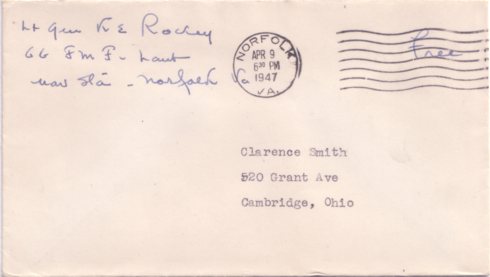 Lt Gen K E Rockey
CG FMF - Lant
Nav Sta - Norfolk Va
NORFOLK
APR 9
6³⁰ PM
1947
VA.
Free
Clarence Smith
520 Grant Ave
Cambridge, Ohio